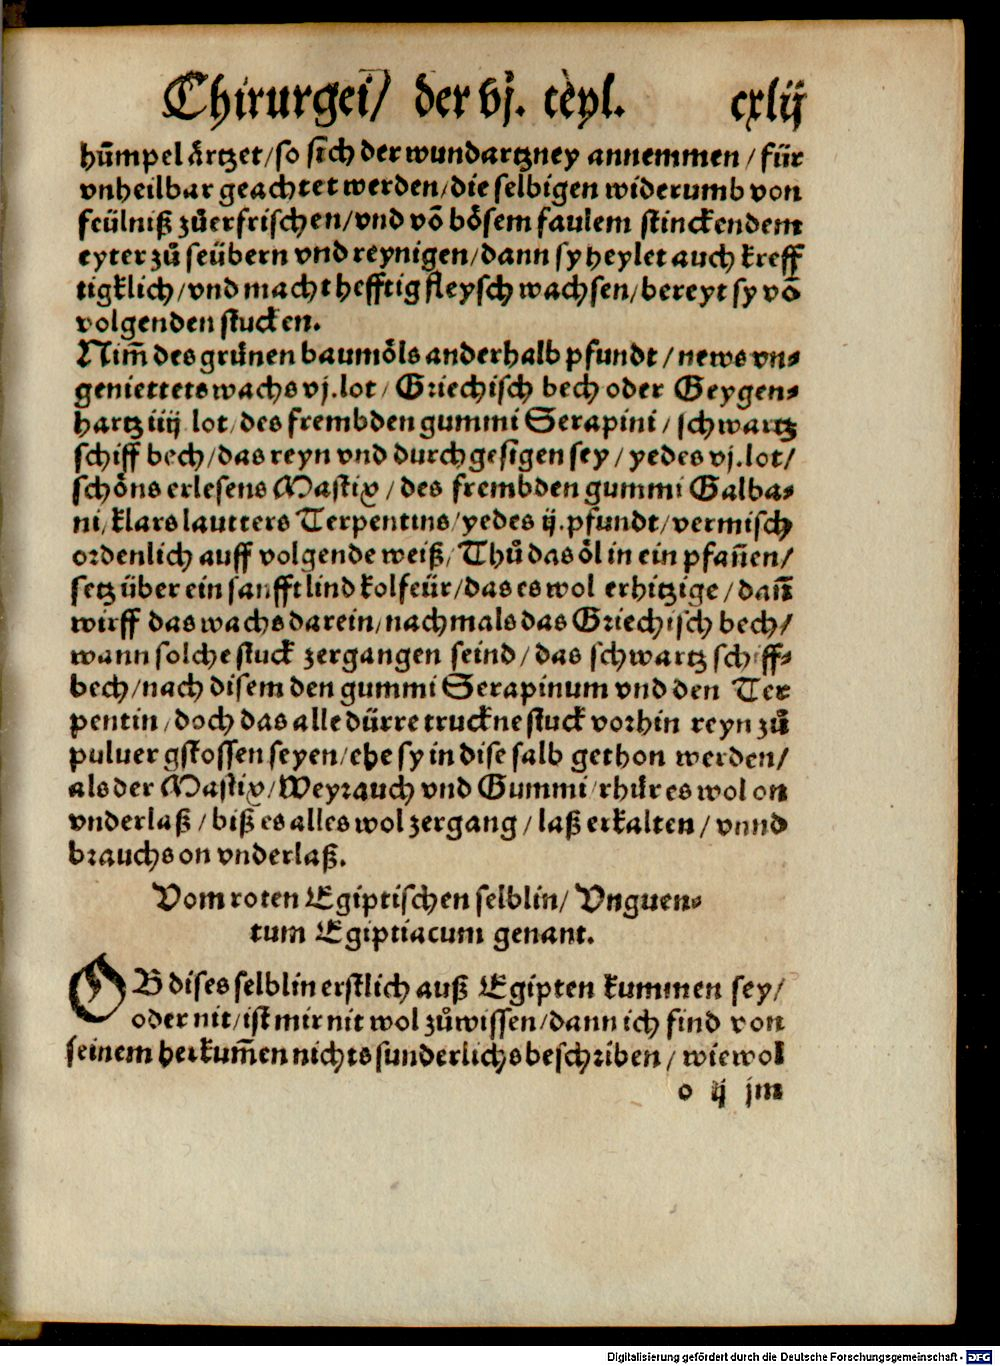 Chirurgei/ der vj. teyl. cxlij
hūmpel ärtzet/so sich der wundartzney annemmen/für
vnheilbar geachtet werden/die selbigen widerumb von
feülniß zůerfrischen/vnd võ bösem faulem stinckendem
eyter zů seübern vnd reynigen/dann sy heylet auch kreff
tigklich/vnd macht hefftig fleysch wachsen/bereyt sy võ
volgenden stucken.
Nim̄ des grünen baumöls anderhalb pfundt/news vn⸗
geniettets wachs vj.lot/Griechisch bech oder Geygen⸗
hartz iiij lot/des frembden gummi Serapini/schwartz
schiff bech/das reyn vnd durchgesigen sey/yedes vj.lot/
schöns erlesens Mastix/des frembden gummi Galba⸗
ni/klars lautters Terpentins/yedes ij.pfundt/vermisch
ordenlich auff volgende weiß/Thů das öl in ein pfañen/
setz über ein sanfft lind kolfeür/das es wol erhitzige/dañ
wirff das wachs darein/nachmals das Griechisch bech/
wann solche stuck zergangen seind/das schwartz schiff⸗
bech/nach disem den gummi Serapinum vnd den Ter
pentin/doch das alle dürre truckne stuck vorhin reyn zů
puluer gstossen seyen/ehe sy in dise salb gethon werden/
als der Mastix/Weyrauch vnd Gummi/rhür es wol on
vnderlaß/biß es alles wol zergang/laß erkalten/vnnd
brauchs on vnderlaß.
Vom roten Egiptischen selblin/Vnguen⸗
tum Egiptiacum genant.
OB dises selblin erstlich auß Egipten kummen sey/
oder nit/ist mir nit wol zůwissen/dann ich find von
seinem herkum̄en nichts sunderlichs beschriben/wiewol
o ij jm
Digitalisierung gefördert durch die Deutsche Forschungsgemeinschaft - DFG